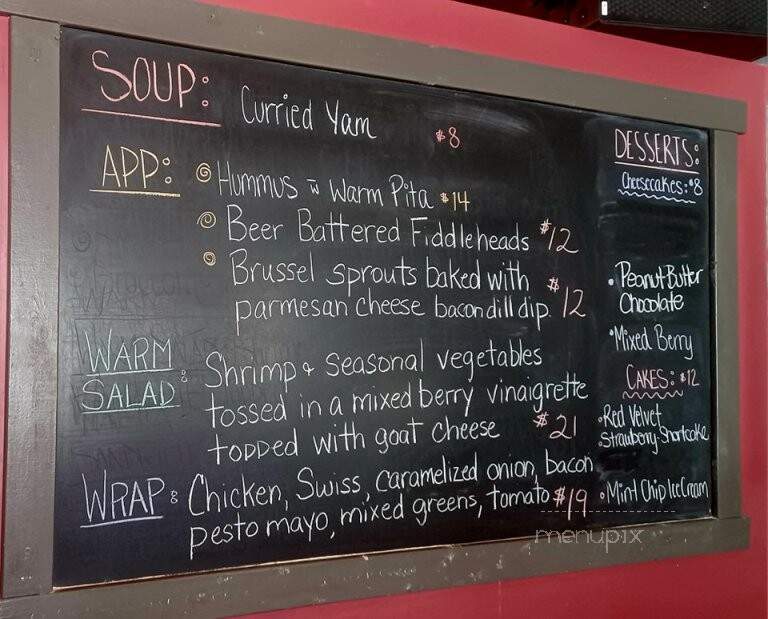 SOUP: Curried Yam $8
APP: Hummus w Warm Pita $14
Beer Battered Fiddleheads $12
Brussel sprouts baked with
parmesan cheese bacon dill dip. $12
WARM
SALAD: Shrimp & seasonal vegetables
tossed in a mixed berry vinaigrette
topped with goat cheese $21
WRAP: Chicken, Swiss, caramelized onion, bacon
pesto mayo, mixed greens, tomato $19
DESSERTS:
Cheesecakes: $8
• Peanut Butter
Chocolate
• Mixed Berry
CAKES: $12
• Red Velvet
• Strawberry Shortcake
• Mint Chip Ice Cream
menupix